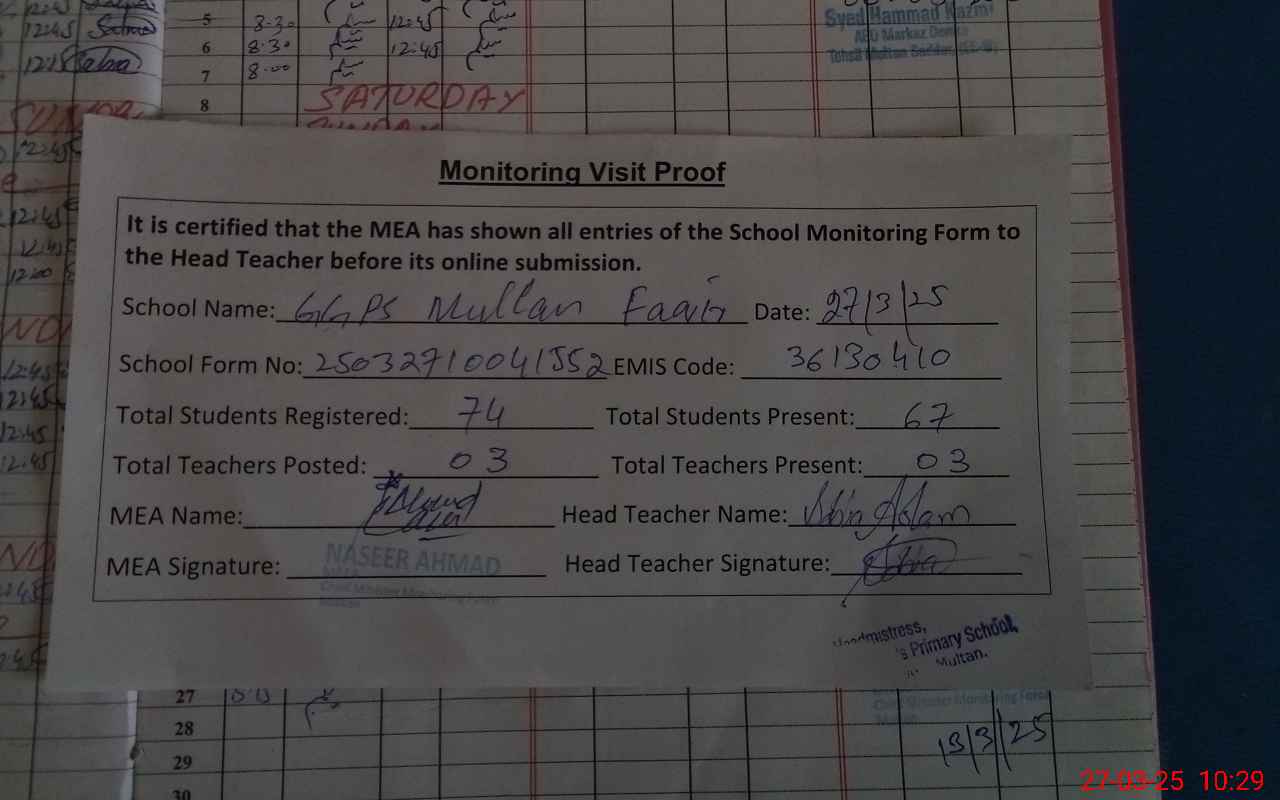 12:45
5 8-30 12:45
12:45 6 8-30 12:45
12:15 7 8-00
8 SATURDAY
SUNDAY
Syed Hammad Kazmi
AEO Markaz
Tehsil Multan Saddar
12:45
12:45
12:45
12:00
12:45
12:45
12:45
12:45
Monitoring Visit Proof
It is certified that the MEA has shown all entries of the School Monitoring Form to
the Head Teacher before its online submission.
School Name: GGPS Mullan Faqir Date: 27/3/25
School Form No: 25032710041552 EMIS Code: 36130410
Total Students Registered: 74 Total Students Present: 67
Total Teachers Posted: 03 Total Teachers Present: 03
MEA Name: Head Teacher Name: Aslam
MEA Signature: Head Teacher Signature:
NASEER AHMAD
Chief Minister Monitoring Force
Multan
Headmistress,
's Primary School,
Multan.
27
28
29
30
Chief Minister Monitoring Force
Multan
13/3/25
27-03-25 10:29